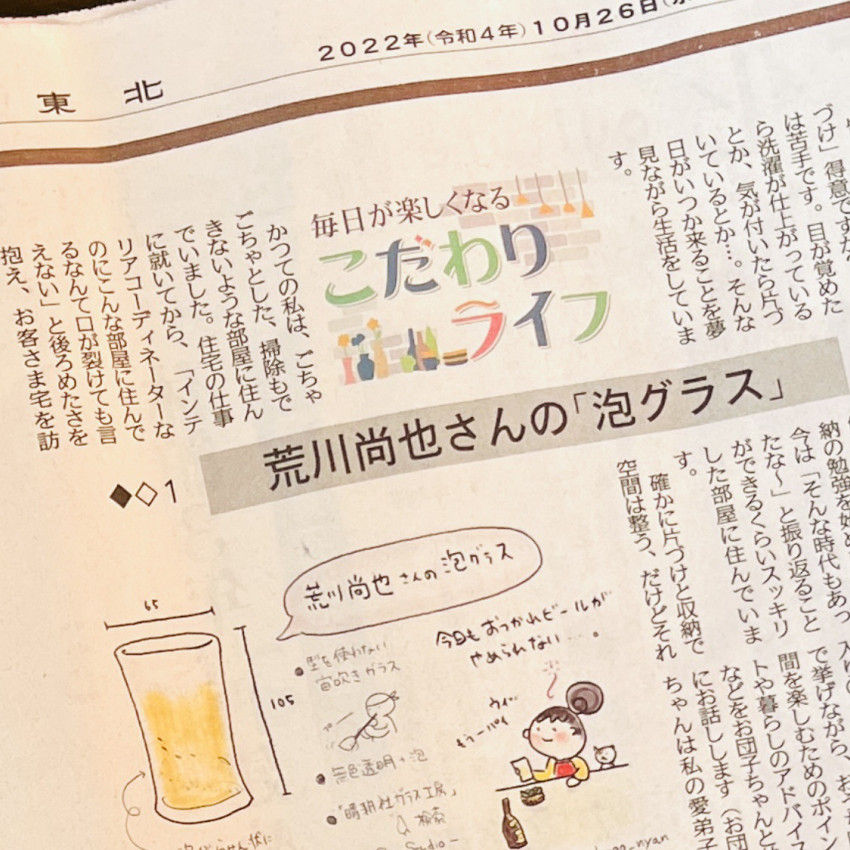 東 北
2022年(令和4年)10月26日
づけ」得意ですか
は苦手です。目が覚めた
ら洗濯が仕上がっている
とか、気が付いたら片づ
いているとか…。そんな
日がいつか来ることを夢
見ながら生活をしていま
す。
毎日が楽しくなる
こだわり
ライフ
かつての私は、ごちゃ
ごちゃとした、掃除もで
きないような部屋に住ん
でいました。住宅の仕事
に就いてから、「インテ
リアコーディネーターな
のにこんな部屋に住んで
るなんて口が裂けても言
えない」と後ろめたさを
抱え、お客さま宅を訪
荒川尚也さんの「泡グラス」
◆◇1
納の勉強を始め
今は「そんな時代もあっ
たな〜」と振り返ること
ができるくらいスッキリ
した部屋に住んでいま
す。
確かに片づけと収納で
空間は整う、だけどそれ
で挙げながら、お
間を楽しむためのポイン
トや暮らしのアドバイス
などをお団子ちゃんと
にお話しします(お団
ちゃんは私の愛弟子
荒川尚也さんの泡グラス
65
105
●型を使わない
宙吹きガラス
●無色透明+泡
●「晴耕社ガラス工房」
検索
今日もおつかれビールが
やめられない…。
ウィ〜
もう一パイ